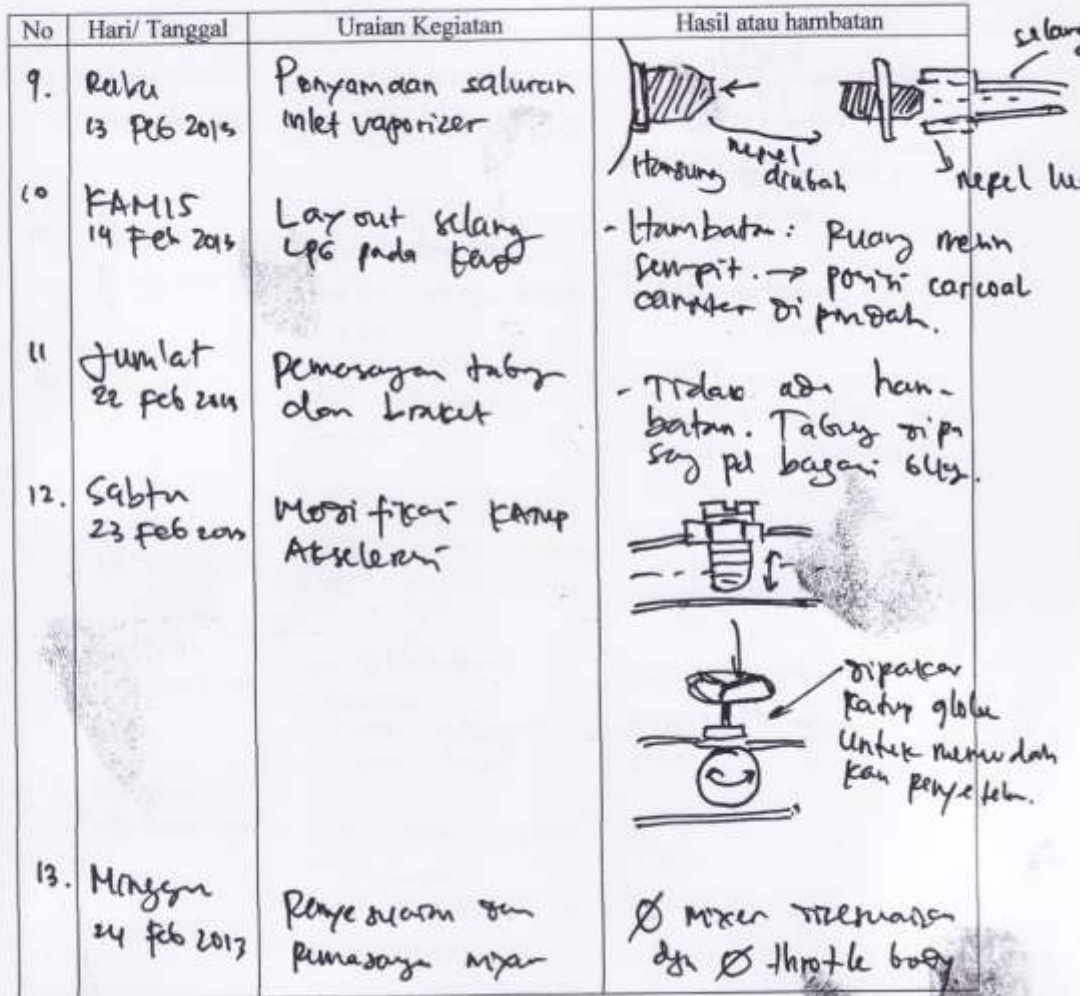 No Hari/ Tanggal Uraian Kegiatan Hasil atau hambatan
9. Rabu
13 Feb 2013
Penyamaan saluran
inlet vaporizer
selang
Hansung
nepel
diubah
nepel
10 KAMIS
14 Feb 2013
Layout selang
LPG pada
- Hambatan: Ruang mesin
sempit. → posisi carcoal
canister di pindah.
11 Jum'at
22 Feb 2013
Pemasangan tabung
dan braket
- Tidak ada ham-
batan. Tabung dipa
sang pd bagian
12. Sabtu
23 Feb 2013
Modifikasi Katup
Akselerasi
dipakai
katup globe
untuk memudah
kan penyetelan.
13. Minggu
24 Feb 2013
Penyesuaian dan
pemasangan mixer
Ø mixer disesuaikan
dgn Ø throttle body